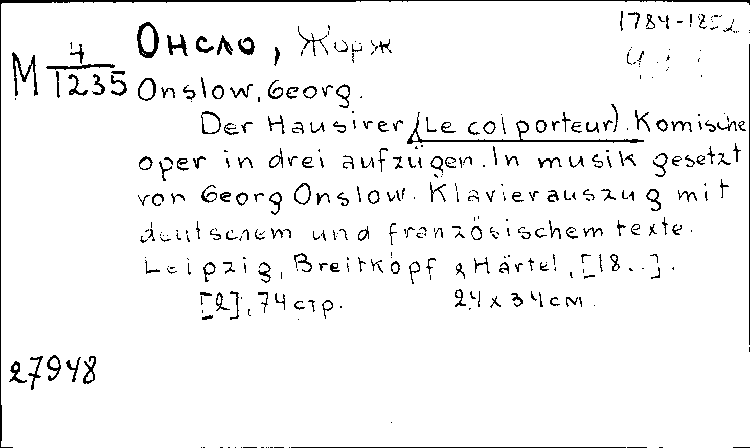 1784-1852
Онсло, Жорж
М 4/1235
Onslow, Georg.
Der Hausirer (Le colporteur). Komische
oper in drei aufzügen. In musik gesetzt
von Georg Onslow. Klavierauszug mit
deutschem und französischem texte.
Leipzig, Breitkopf & Härtel, [18..].
[2], 74 стр. 24 x 34 см.
27948